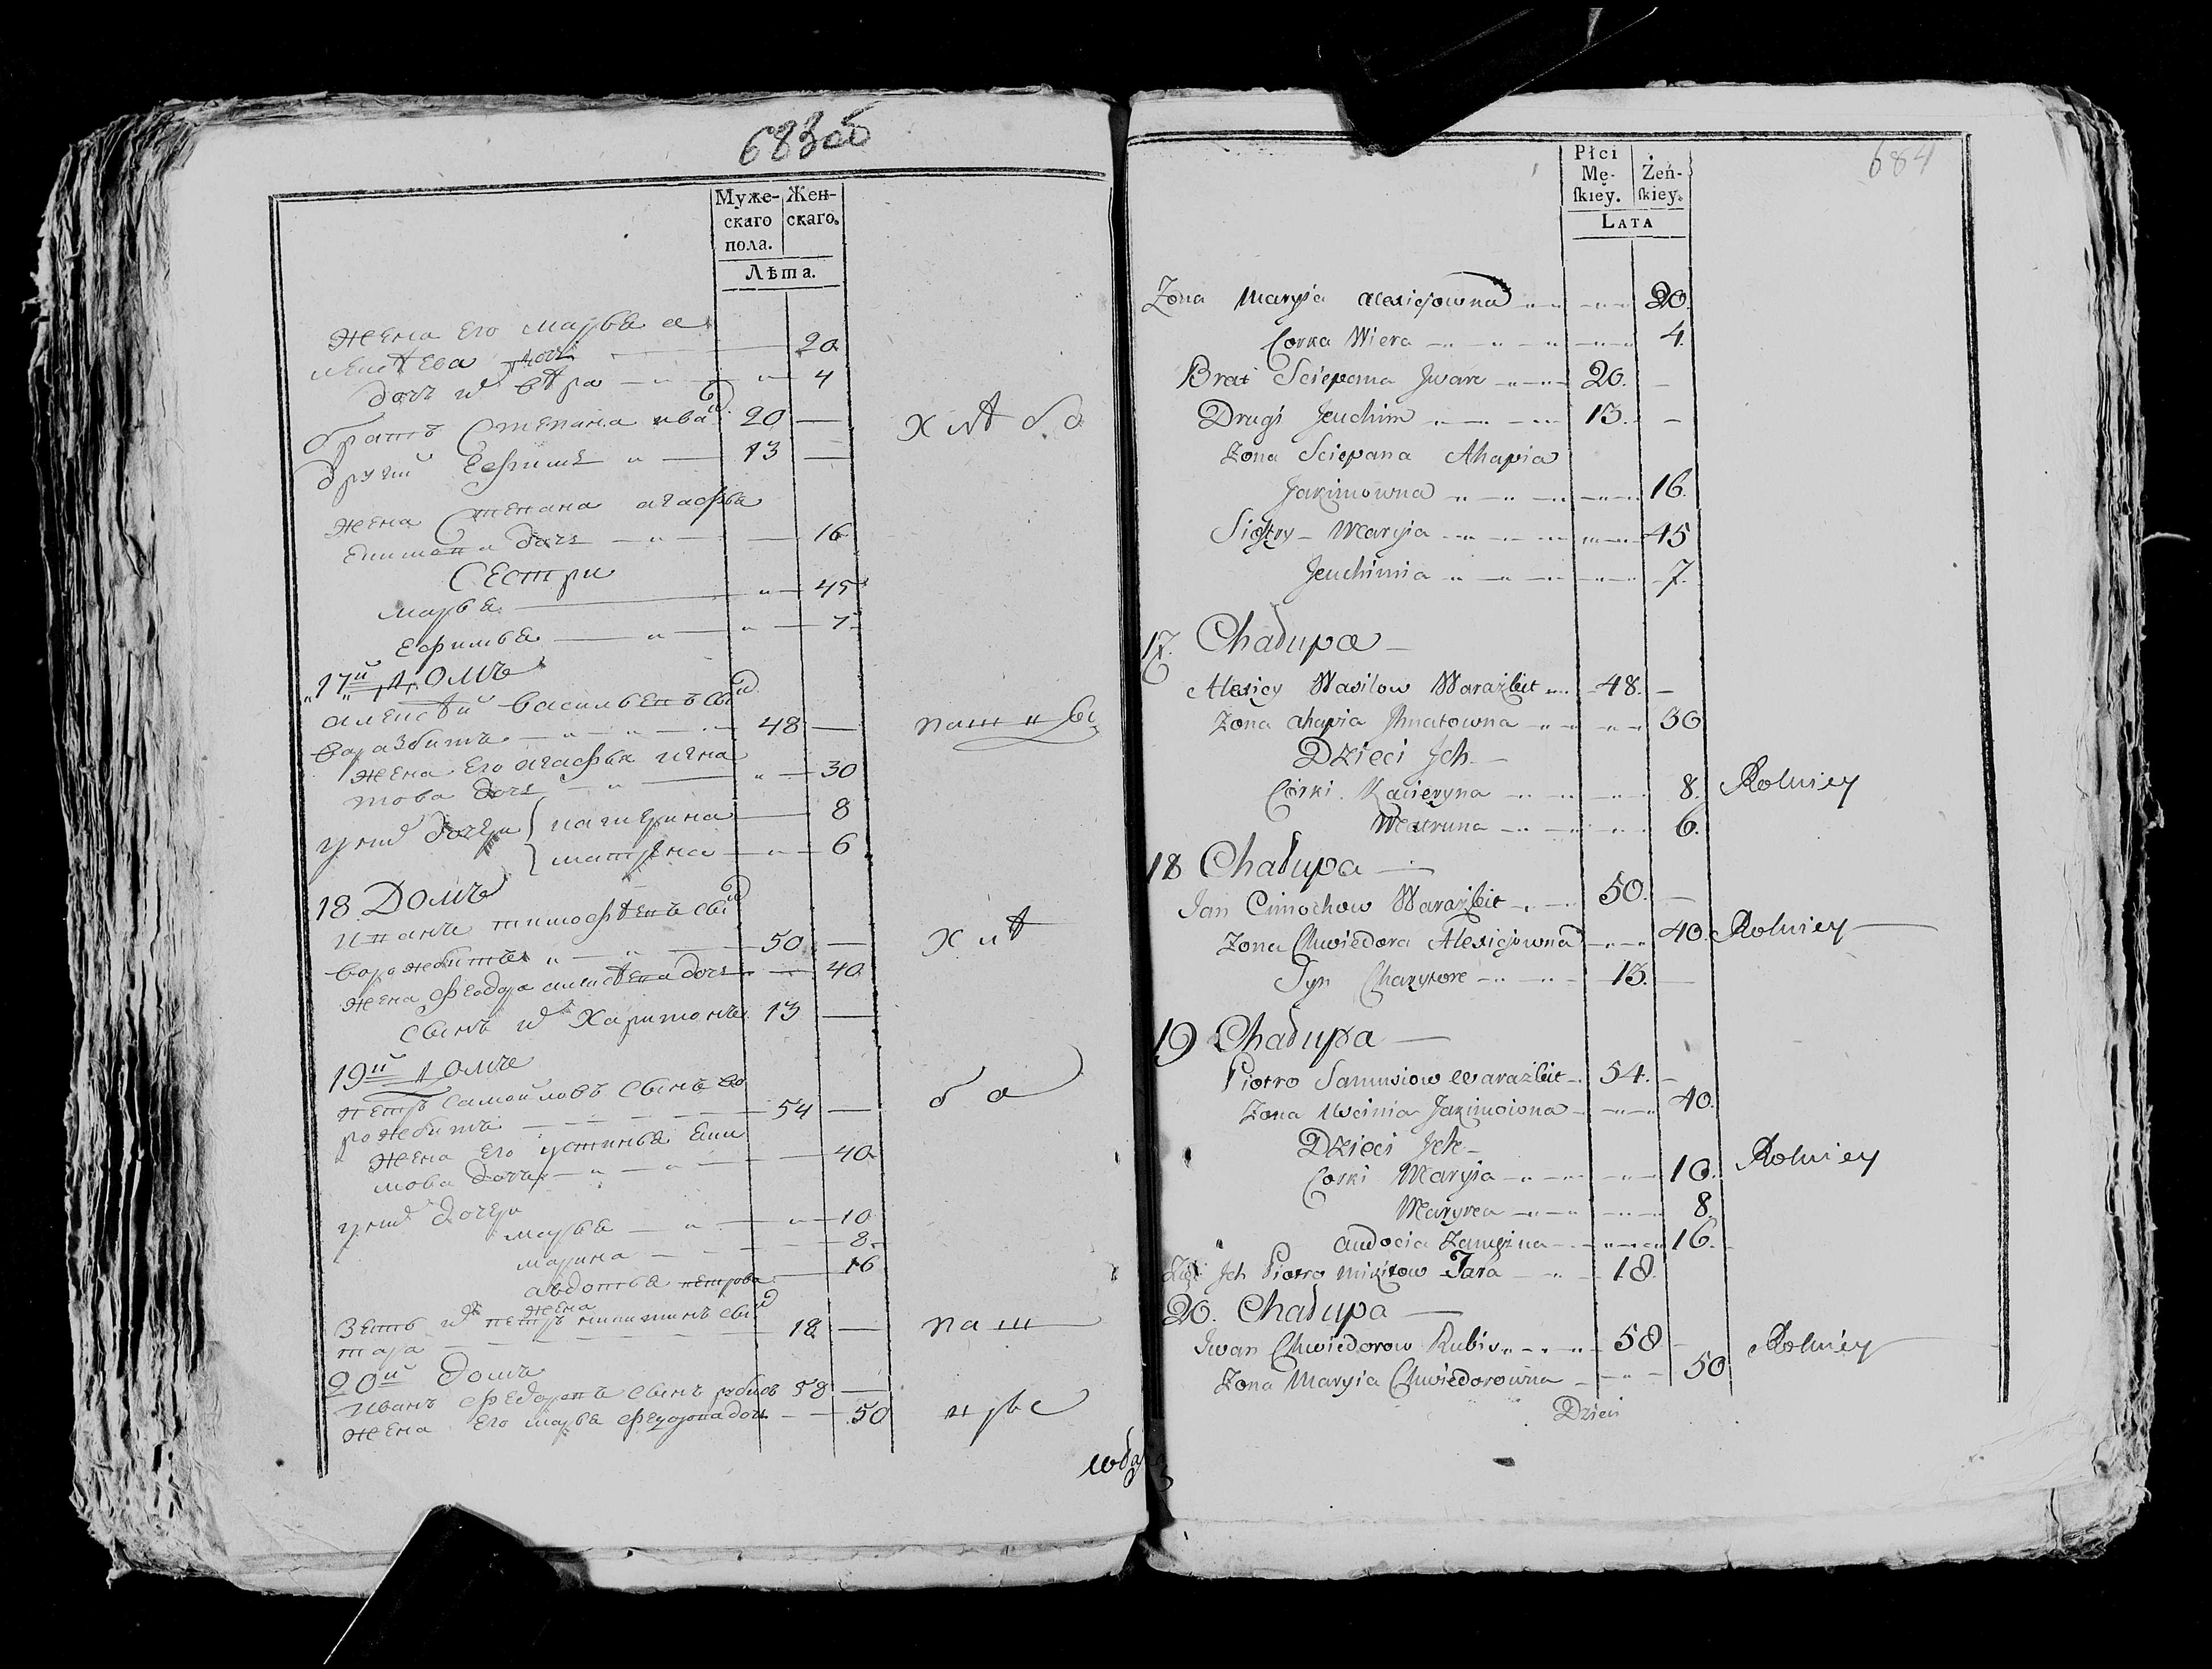 683об
Муже- Жен-
скаго скаго.
пола.
Лѣта.
жена его марья а
лексѣева дочь 20
дочь их вѣра 4
братъ Степана иванъ 20 —
другий Ефимъ 13 —
хлѣбо
жена Степана агафья
екимова дочь 16
Сестры
марья 45
ефимья 7
17й Домъ
алексѣй васильевъ сынъ
варазбитъ 48 —
пашцы
жена его агафья игна
това дочь 30
ихъ дочери катерина 8
матрена 6
18 Домъ
иванъ тимофѣевъ сынъ
варажбитъ 50 —
хлѣ
жена феодора алексѣева дочь 40
сынъ их харитонъ 13 —
19й Домъ
петръ самойловъ сынъ ва
ражбитъ 54 —
бо
жена его устинья еки
мова дочь 40
ихъ дочери
марья 10
марина 8
авдотья петрова 16
жена
зеть их петръ никитинъ сынъ
тара 18 —
паш
20й домъ
иванъ федоровъ сынъ рубисъ 58 —
жена его марья федорова дочь 50
цы
684
Płci
Mę- Żeń-
skiey. skiey.
LATA
Zona Marysia Alexiejowna 20
Corka Wiera 4
Brat Sciepana Jwan 20. —
Drugi Jeuchim 13. —
Zona Sciepana Ahapia
Jakimowna 16.
Siostry Marysia 45
Jeuchimia 7.
17. Chałupa
Alexiey Wasilow Warażbit 48. —
Zona Ahapia Jhnatowna 30
Dzieci Jch
Corki Kacieryna 8. Rolniey
Matruna 6.
18 Chałupa
Jan Cimochow Warażbit 50. —
Zona Chwiedora Alexiejowna 40. Rolniey
Syn Charyton 13. —
19 Chałupa
Piotro Samusiow Warażbit 54. —
Zona Uscinia Jakimowna 40.
Dzieci Jch
Corki Marysia 10. Rolniey
Maryna 8.
Audocia Zamężna 16.
Zięć Jch Piotro Mikitow Tara 18.
20. Chałupa
Jwan Chwiedorow Rubis 58 — Rolniey
Zona Marysia Chwiedorowna 50
Dzieci